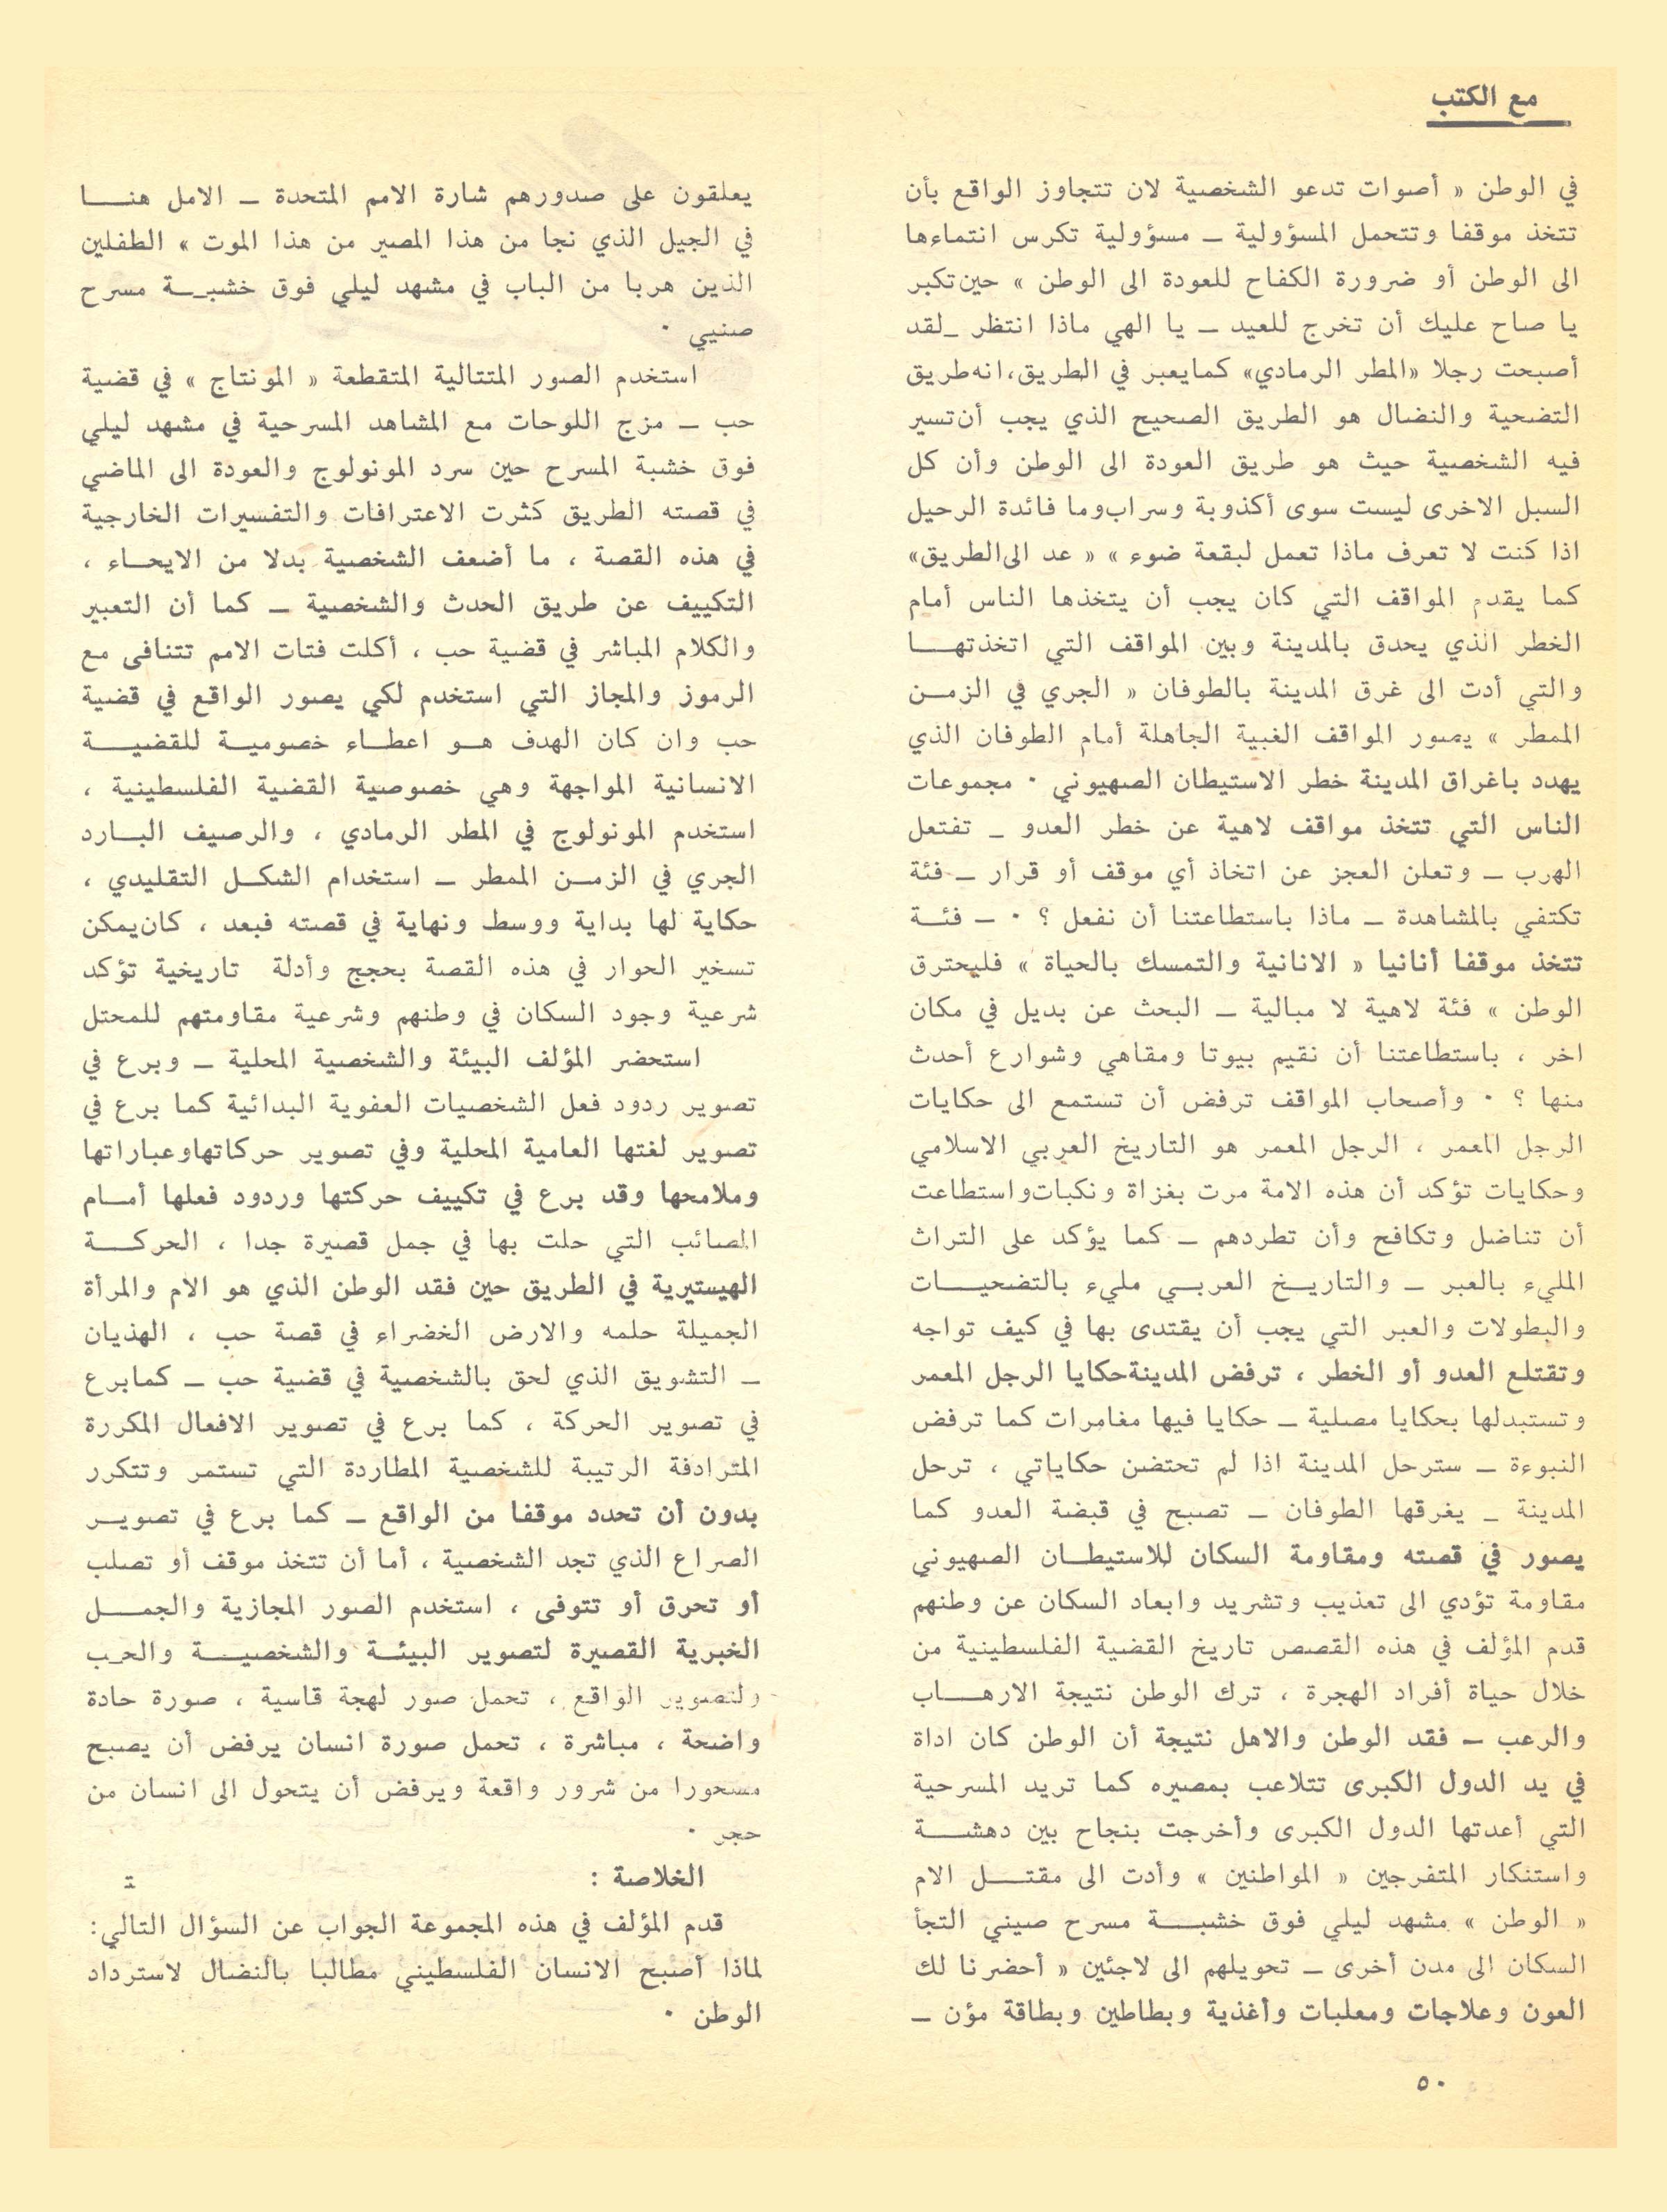 مع الكتب
في الوطن « أصوات تدعو الشخصية لان تتجاوز الواقع بأن
تتخذ موقفا وتتحمل المسؤولية ــ مسؤولية تكرس انتماءها
الى الوطن أو ضرورة الكفاح للعودة الى الوطن » حين تكبر
يا صاح عليك أن تخرج للعيد ــ يا الهي ماذا انتظر ــ لقد
أصبحت رجلا «المطر الرمادي» كما يعبر في الطريق، انه طريق
التضحية والنضال هو الطريق الصحيح الذي يجب أن تسير
فيه الشخصية حيث هو طريق العودة الى الوطن وأن كل
السبل الاخرى ليست سوى أكذوبة وسراب وما فائدة الرحيل
اذا كنت لا تعرف ماذا تعمل لبقعة ضوء » « عد الى الطريق»
كما يقدم المواقف التي كان يجب أن يتخذها الناس أمام
الخطر الذي يحدق بالمدينة وبين المواقف التي اتخذتهــا
والتي أدت الى غرق المدينة بالطوفان « الجري في الزمــن
الممطر » يصور المواقف الغبية الجاهلة أمام الطوفان الذي
يهدد باغراق المدينة خطر الاستيطان الصهيوني ٠ مجموعات
الناس التي تتخذ مواقف لاهية عن خطر العدو ــ تفتعل
الهرب ــ وتعلن العجز عن اتخاذ أي موقف أو قرار ــ فئة
تكتفي بالمشاهدة ــ ماذا باستطاعتنا أن نفعل ؟ ٠ ــ فئــة
تتخذ موقفا أنانيا « الانانية والتمسك بالحياة » فليحترق
الوطن » فئة لاهية لا مبالية ــ البحث عن بديل في مكان
اخر ، باستطاعتنا أن نقيم بيوتا ومقاهي وشوارع أحدث
منها ؟ ٠ وأصحاب المواقف ترفض أن تستمع الى حكايات
الرجل المعمر ، الرجل المعمر هو التاريخ العربي الاسلامي
وحكايات تؤكد أن هذه الامة مرت بغزاة ونكبات واستطاعت
أن تناضل وتكافح وأن تطردهم ــ كما يؤكد على التراث
المليء بالعبر ــ والتاريــخ العربــي مليء بالتضحيــات
والبطولات والعبر التي يجب أن يقتدى بها في كيف تواجه
وتقتلع العدو أو الخطر ، ترفض المدينة حكايا الرجل المعمر
وتستبدلها بحكايا مصلية ــ حكايا فيها مغامرات كما ترفض
النبوءة ــ سترحل المدينة اذا لم تحتضن حكاياتي ، ترحل
المدينة ــ يغرقها الطوفان ــ تصبح في قبضة العدو كما
يصور في قصته ومقاومة السكان للاستيطــان الصهيوني
مقاومة تؤدي الى تعذيب وتشريد وابعاد السكان عن وطنهم
قدم المؤلف في هذه القصص تاريخ القضية الفلسطينية من
خلال حياة أفراد الهجرة ، ترك الوطن نتيجة الارهــاب
والرعب ــ فقد الوطن والاهل نتيجة أن الوطن كان اداة
في يد الدول الكبرى تتلاعب بمصيره كما تريد المسرحية
التي أعدتها الدول الكبرى وأخرجت بنجاح بين دهشــة
واستنكار المتفرجين « المواطنين » وأدت الى مقتــل الام
« الوطن » مشهد ليلي فوق خشبــة مسرح صيني التجأ
السكان الى مدن أخرى ــ تحويلهم الى لاجئين « أحضرنا لك
العون وعلاجات ومعلبات وأغذية وبطاطين وبطاقة مؤن ــ
يعلقون على صدورهم شارة الامم المتحدة ــ الامل هنــا
في الجيل الذي نجا من هذا المصير من هذا الموت » الطفلين
الذين هربا من الباب في مشهد ليلي فوق خشبــة مسرح
صنيي ٠
استخدم الصور المتتالية المتقطعة « المونتاج » في قضية
حب ــ مزج اللوحات مع المشاهد المسرحية في مشهد ليلي
فوق خشبة المسرح حين سرد المونولوج والعودة الى الماضي
في قصته الطريق كثرت الاعترافات والتفسيرات الخارجية
في هذه القصة ، ما أضعف الشخصية بدلا من الايحــاء ،
التكييف عن طريق الحدث والشخصية ــ كما أن التعبير
والكلام المباشر في قضية حب ، أكلت فتات الامم تتنافى مع
الرموز والمجاز التي استخدم لكي يصور الواقع في قضية
حب وان كان الهدف هــو اعطــاء خصوميــة للقضيــة
الانسانية المواجهة وهي خصوصية القضية الفلسطينية ،
استخدم المونولوج في المطر الرمادي ، والرصيف البــارد
الجري في الزمــن الممطر ــ استخدام الشكــل التقليدي ،
حكاية لها بداية ووسط ونهاية في قصته فبعد ، كان يمكن
تسخير الحوار في هذه القصة بحجج وأدلة تاريخية تؤكد
شرعية وجود السكان في وطنهم وشرعية مقاومتهم للمحتل
استحضر المؤلف البيئة والشخصية المحلية ــ وبرع في
تصوير ردود فعل الشخصيات العفوية البدائية كما برع في
تصوير لغتها العامية المحلية وفي تصوير حركاتها وعباراتها
وملامحها وقد برع في تكييف حركتها وردود فعلها أمــام
المصائب التي حلت بها في جمل قصيرة جدا ، الحركــة
الهيستيرية في الطريق حين فقد الوطن الذي هو الام والمرأة
الجميلة حلمه والارض الخضراء في قصة حب ، الهذيان
ــ التشويق الذي لحق بالشخصية في قضية حب ــ كما برع
في تصوير الحركة ، كما برع في تصوير الافعال المكررة
المترادفة الرتيبة للشخصية المطاردة التي تستمر وتتكرر
بدون أن تحدد موقفا من الواقع ــ كما برع في تصويــر
الصراع الذي تجد الشخصية ، أما أن تتخذ موقف أو تصلب
أو تحرق أو تتوفى ، استخدم الصور المجازية والجمــل
الخبرية القصيرة لتصوير البيئــة والشخصيــة والحــب
ولتصوير الواقع ، تحمل صور لهجة قاسية ، صورة حادة
واضحة ، مباشرة ، تحمل صورة انسان يرفض أن يصبح
مسحورا من شرور واقعة ويرفض أن يتحول الى انسان من
حجر ٠
الخلاصة :
قدم المؤلف في هذه المجموعة الجواب عن السؤال التالي:
لماذا أصبح الانسان الفلسطيني مطالبا بالنضال لاسترداد
الوطن ٠
٥٠